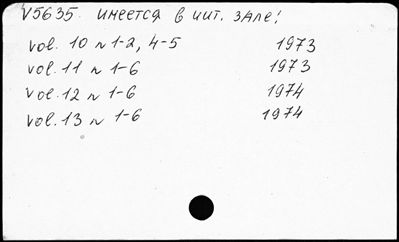 V5635. имеется в чит. зале!
vol. 10 n 1-2, 4-5 1973
vol. 11 n 1-6 1973
vol. 12 n 1-6 1974
vol. 13 n 1-6 1974